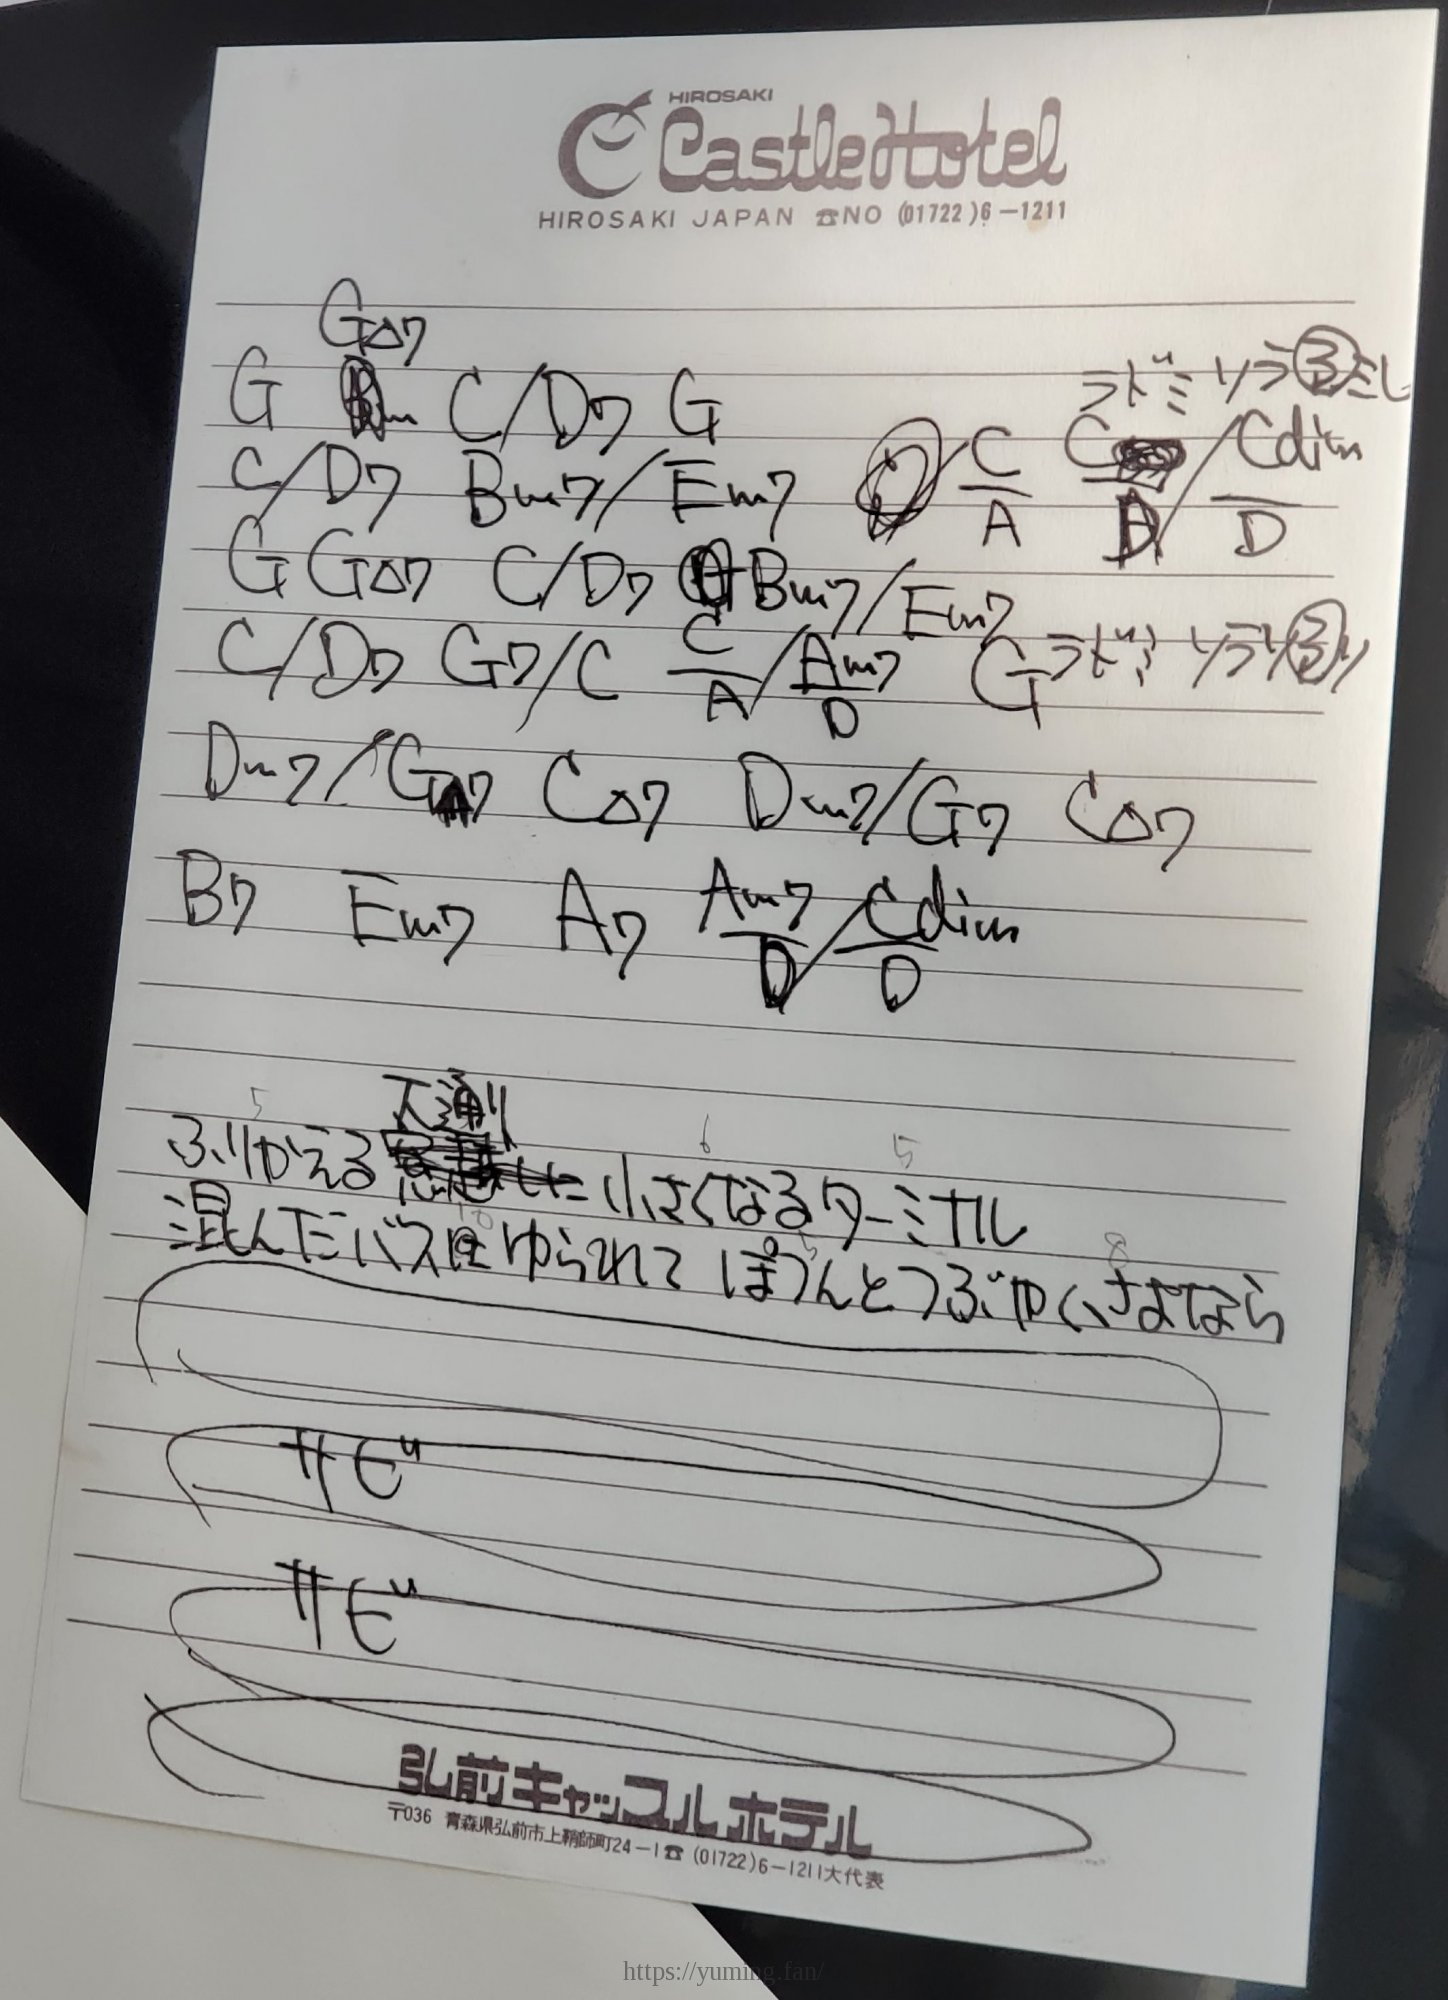 HIROSAKI
Castle Hotel
HIROSAKI JAPAN ☎NO (01722)6-1211
G△7
G C/D7 G
ラドミソラ③ミレ
C/D7 Bm7/Em7 C/A C/Cdim/D
G G△7 C/D7 Bm7/Em7
C/D7 G7/C C/A/Am7/D G ラドミソラソ③ソ
Dm7/G7 C△7 Dm7/G7 C△7
B7 Em7 A7 Am7/D/Cdim/D
大通り
5 6 5
ふりかえる 小さくなるターミナル
10 5 8
混んだバスにゆられて ぽつんとつぶやくさよなら
サビ
サビ
弘前キャッスルホテル
〒036 青森県弘前市上鞘師町24-1☎(01722)6-1211大代表
https://yuming.fan/